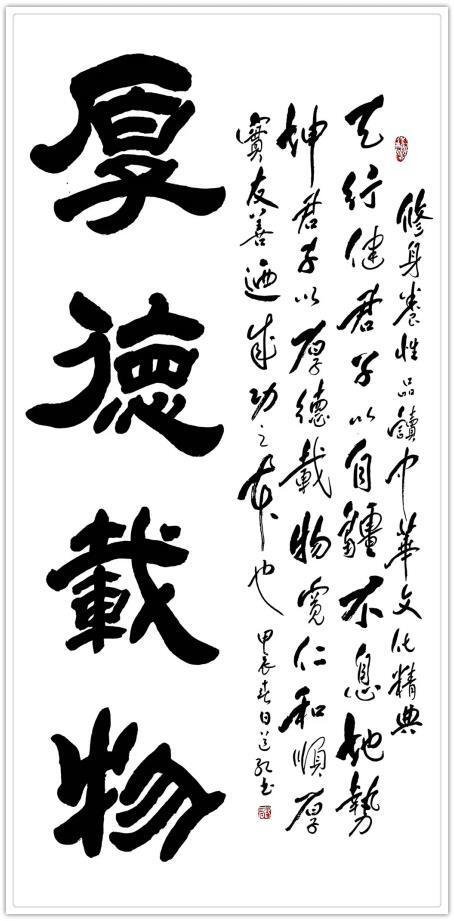 修身養性品讀中華文化精典
天行健君子以自疆不息地勢
坤君子以厚德載物寬仁和順厚
實友善迺成功之本也
甲辰春日道书
厚德載物